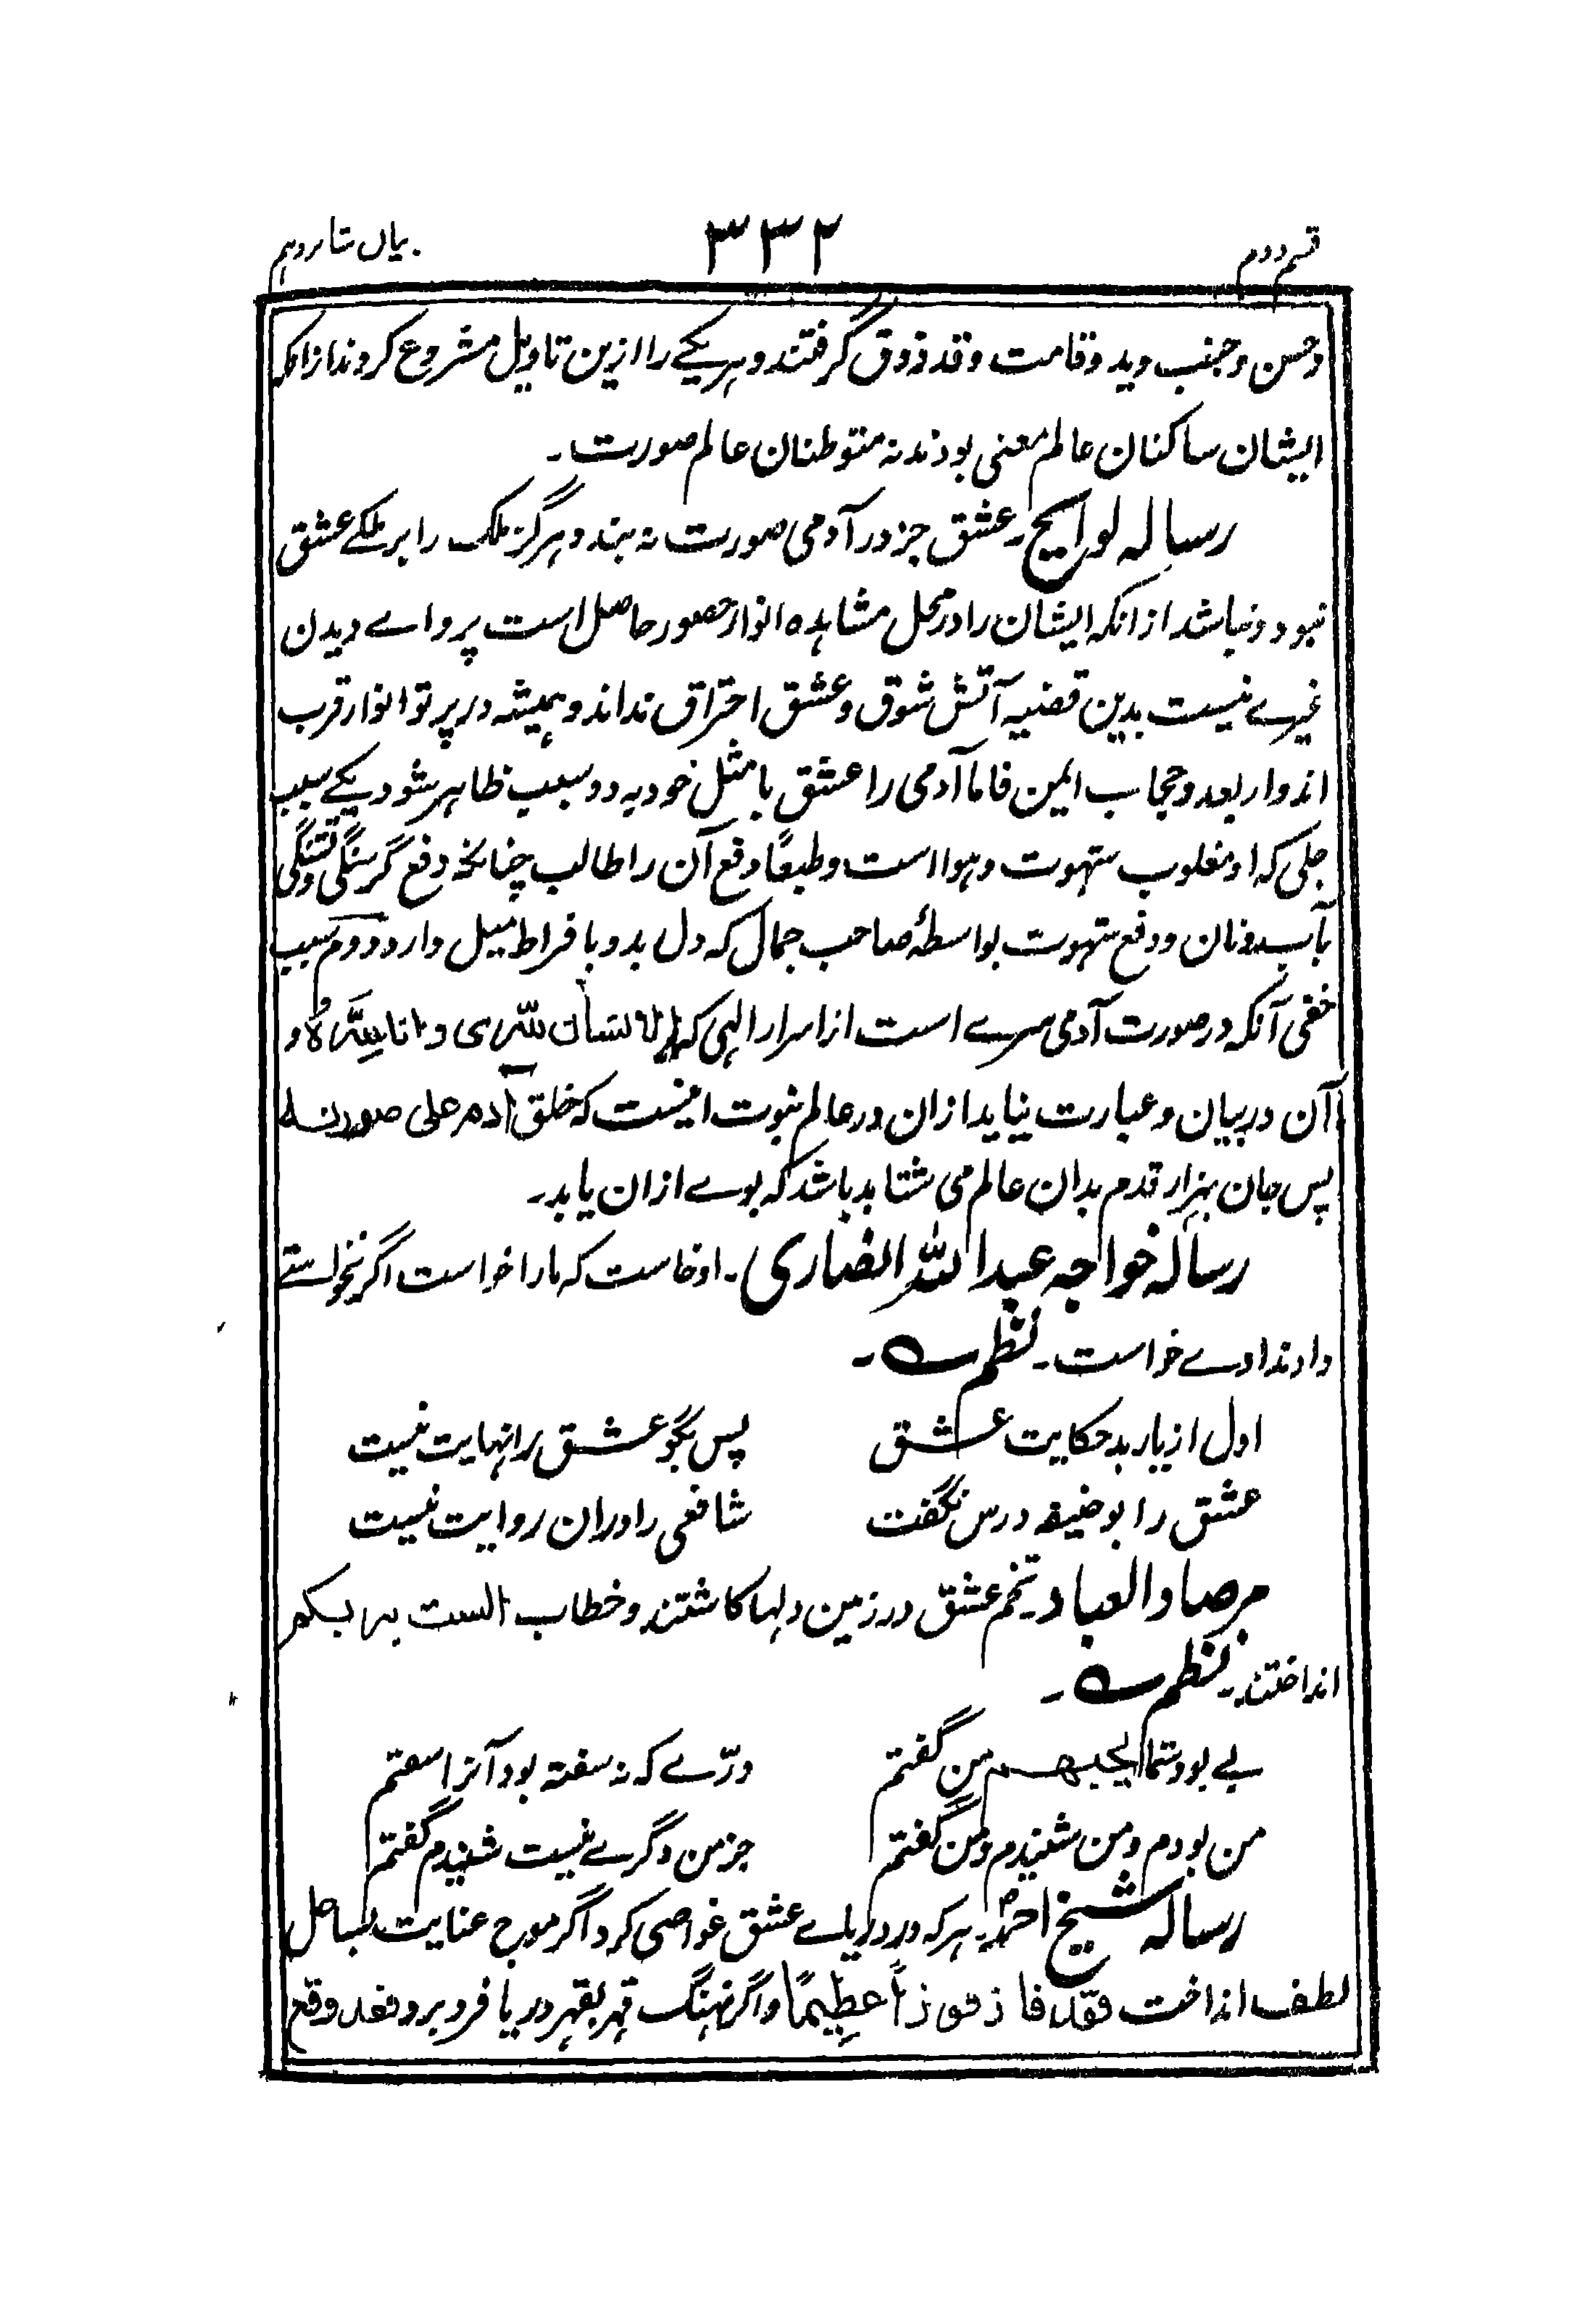 قسم دوم ۳۳۲ بیان شانزدهم
و حسن و جنب و ید و قامت و قد ذوق گرفتند و ہریکے را ازین تاویل مشروع کردند ازانکہ
ایشان ساکنان عالم معنی بودند نہ متوطنان عالم صورت۔
رسالہ لوایح۔ عشق جز در آدمی صورت نہ بندد ہرگز ملک را بر ملکے عشق
نبود و نباشد ازانکہ ایشان را در محل مشاہدہ انوار حضور حاصل است پرواے دیدن
غیرے نیست بدین قضیہ آتش شوق و عشق احتراق نداند و ہمیشہ در پرتو انوار قرب
اند و از بعد و حجاب ایمن فاما آدمی را عشق با مثل خود بہ دو سبب ظاہر شود یکے سبب
جلی کہ او مغلوب شہوت و ہوا است و طبعًا دفع آن را طالب چنانچہ دفع گرسنگی و تشنگی
بآب و نان و دفع شہوت بواسطۂ صاحب جمال کہ دل بدو با فراط میل دارد دوم سبب
خفی آنکہ در صورت آدمی سرے است از اسرار الٰہی کہ الانسان سری و انا سِرُّہٗ و
آن در بیان و عبارت نیاید ازان در عالم ثبوت اینست کہ خلق آدم علی صورتہ
پس جان ہزار قدم بدان عالم می شتابد باشد کہ بوے ازان یابد۔
رسالہ خواجہ عبداللہ انصاری۔ او خاست کہ ما را خواست اگر نخواستے
داد ندادے خواست۔ نظم ؎۔
اول از یار بد حکایت عشق پس بگو عشق را نہایت نیست
عشق را بوحنیفہ درس نگفت شافعی را دران روایت نیست
مرصاد العباد۔ تخم عشق در زمین دلہا کاشتند و خطاب الست بربکم
انداختند۔ نظم ؎۔
بے بود شما یحبہم من گفتم درّے کہ نہ سفتہ بود آنرا سفتم
من بودم و من شنیدم و من گفتم جز من دگرے نیست شنیدم گفتم
رسالہ شیخ احمد۔ ہرکہ در دریاے عشق غواصی کرد اگر موج عنایت بساحل
لطف انداخت فقد فاز فوزاً عظیمًا و اگر نہنگ قہر بقہر دریا فرو برد فقد وقع